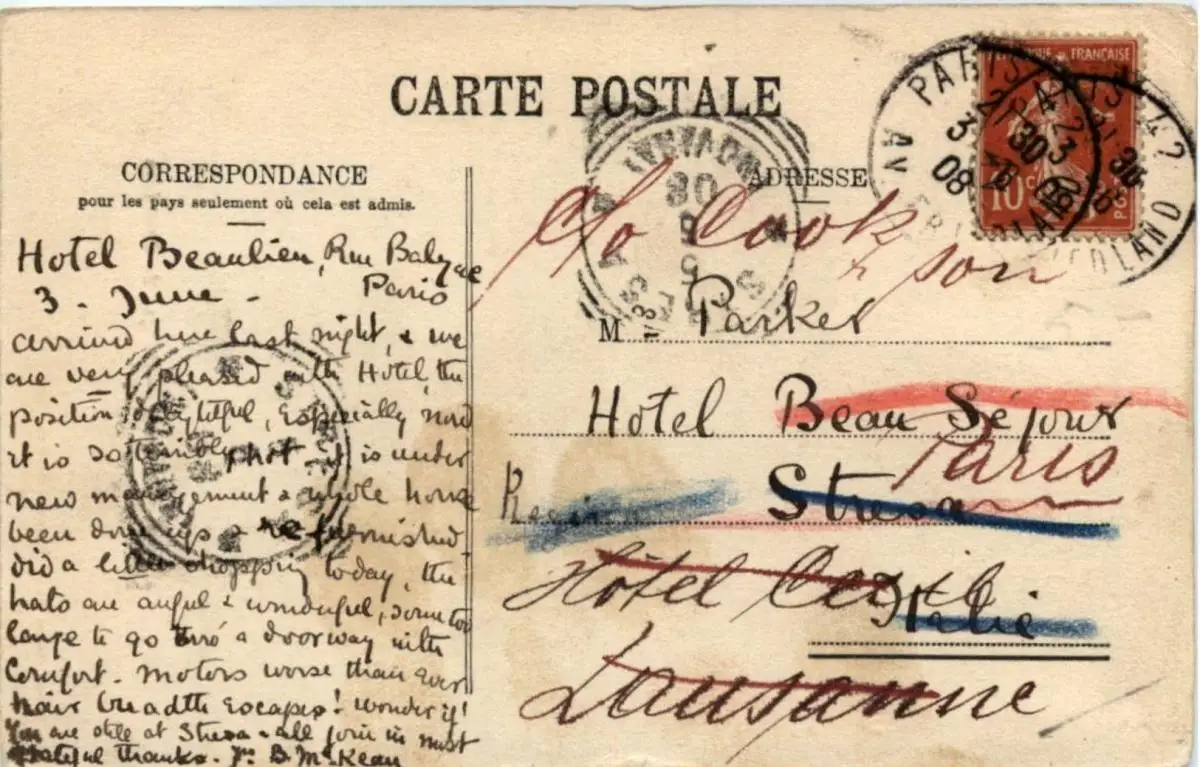 CARTE POSTALE
CORRESPONDANCE
pour les pays seulement où cela est admis.
ADRESSE
Hotel Beaulieu, Rue Balzac
Paris
3. June -
arrived here last night, & we
are very pleased with Hotel, the
position delightful, especially now
it is so terribly hot - it is under
new management & whole house
been done up & re-furnished
did a little shopping today, the
hats are awful & wonderful, some too
large to go thro' a doorway with
comfort. Motors worse than ever
hair breadth escapes! wonder if
you are still at Stresa - all join in most
grateful thanks. Yrs B. McKean
c/o Cook & son
M - Parker
Hotel Beau Séjour
Paris
Stresa
Hôtel Cecil
Italie
Lausanne
PARIS
08
RÉPUBLIQUE FRANÇAISE
10